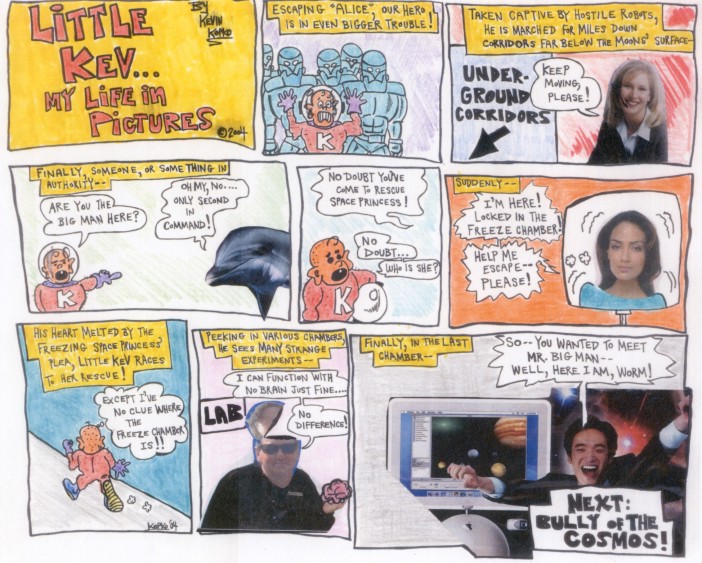 LITTLE
KEV...
MY LIFE IN
PICTURES
BY
KEVIN
KOPKO
©2004
ESCAPING "ALICE", OUR HERO,
IS IN EVEN BIGGER TROUBLE!
K
TAKEN CAPTIVE BY HOSTILE ROBOTS,
HE IS MARCHED FOR MILES DOWN
CORRIDORS FAR BELOW THE MOONS' SURFACE--
UNDER-
GROUND
CORRIDORS
KEEP
MOVING,
PLEASE!
FINALLY, SOMEONE, OR SOMETHING IN
AUTHORITY--
ARE YOU THE
BIG MAN HERE?
K
OH MY, NO....
ONLY SECOND
IN
COMMAND!
NO DOUBT YOU'VE
COME TO RESCUE
SPACE PRINCESS!
NO
DOUBT...
WHO IS SHE?
K9
SUDDENLY--
I'M HERE!
LOCKED IN THE
FREEZE CHAMBER!
HELP ME
ESCAPE--
PLEASE!
HIS HEART MELTED BY THE
FREEZING SPACE PRINCESS'
PLEA, LITTLE KEV RACES
TO HER RESCUE!
EXCEPT I'VE
NO CLUE WHERE
THE
FREEZE CHAMBER
IS!!
KOPKO '04
PEEKING IN VARIOUS CHAMBERS,
HE SEES MANY STRANGE
EXPERIMENTS--
I CAN FUNCTION WITH
NO BRAIN JUST FINE....
LAB
NO
DIFFERENCE!
FINALLY, IN THE LAST
CHAMBER--
SO-- YOU WANTED TO MEET
MR. BIG MAN--
WELL, HERE I AM, WORM!
NEXT:
BULLY OF THE
COSMOS!